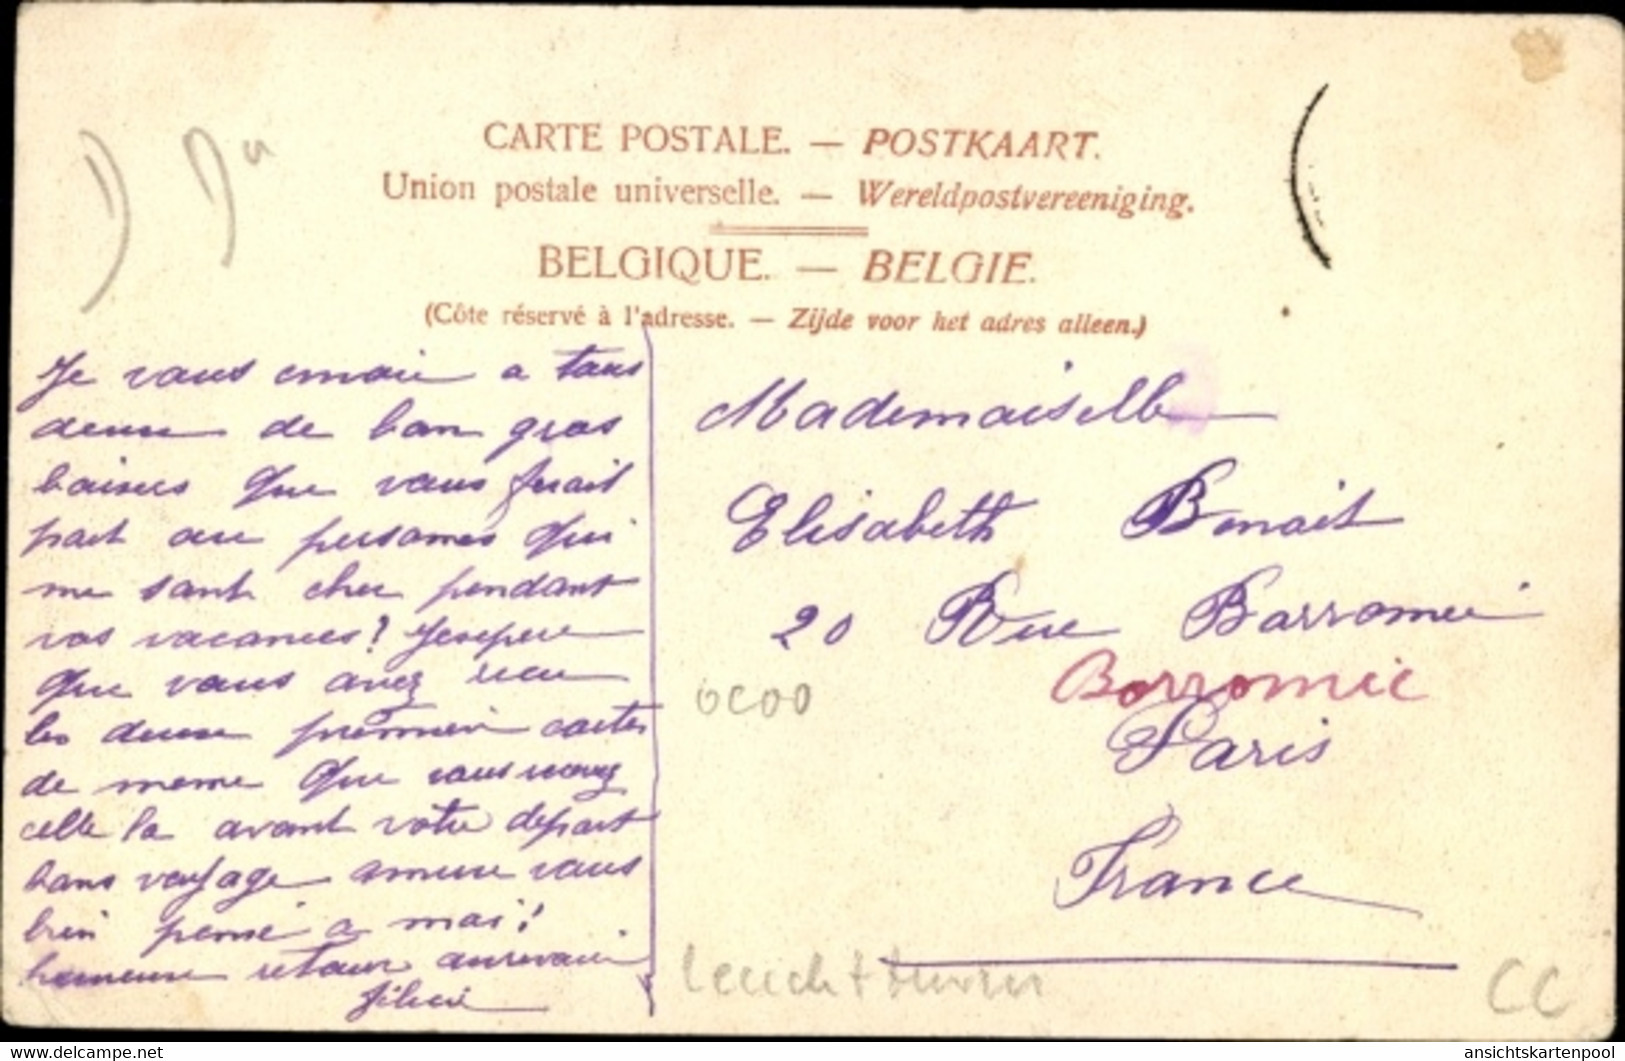 CARTE POSTALE. — POSTKAART.
Union postale universelle. — Wereldpostvereeniging.
BELGIQUE. — BELGIE.
(Côte réservé à l'adresse. — Zijde voor het adres alleen.)
Je vous envoie a tous
deux de bon gros
baisers que vous ferait
part au persones qui
me sont cher pendant
vos vacances? Jesepere
que vous avez recu
les deux premier cartes
de meme que vous
celle la avant votre depart
bons voyage amuse vous
bien pensé a moi!
heureuse retour aurevoir
Mademoiselle
Elisabeth Benoit
20 Rue Barromée
Borromée
Paris
France
Leuchtturm
CC
ansichtskartenpool